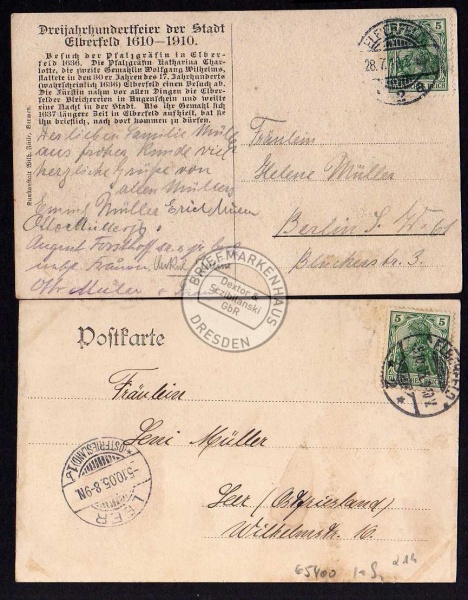 Dreijahrhundertfeier der Stadt
Elberfeld 1610-1910.
Besuch der Pfalzgräfin in Elber-
feld 1636. Die Pfalzgräfin Katharina Char-
lotte, die zweite Gemahlin Wolfgang Wilhelms,
stattete in den 30er Jahren des 17. Jahrhunderts
(wahrscheinlich 1636) Elberfeld einen Besuch ab.
Die Fürstin nahm vor allen Dingen die Elber-
felder Bleichereien in Augenschein und weilte
eine Nacht in der Stadt. Als ihr Gemahl sich
1637 längere Zeit in Elberfeld aufhielt, bat sie
ihn brieflich, nach dort kommen zu dürfen.
Der lieben Familie Müller
aus froher Runde viel
herzliche Grüße von
allen Müllers
Emmy Müller Erich
Otto Müller
August
Frauen
Otto Müller
ELBERFELD
28.7.
5
Fräulein
Helene Müller
Berlin S. W. 61
Blücherstr. 3.
BRIEFMARKENHAUS
Dextor &
Sczibilanski
GbR
DRESDEN
Postkarte
5
5
Fräulein
Leni Müller
Leer (Ostfriesland)
Wilhelmstr. 10.
LEER
*(OSTFRIESLAND)*
-5.10.05.8-9N
€5400